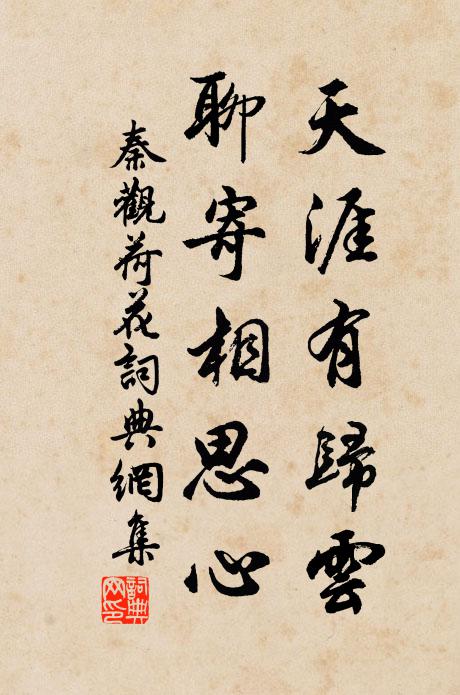 天涯有歸雲
聊寄相思心
秦觀荷花詞典網集
詞典網印